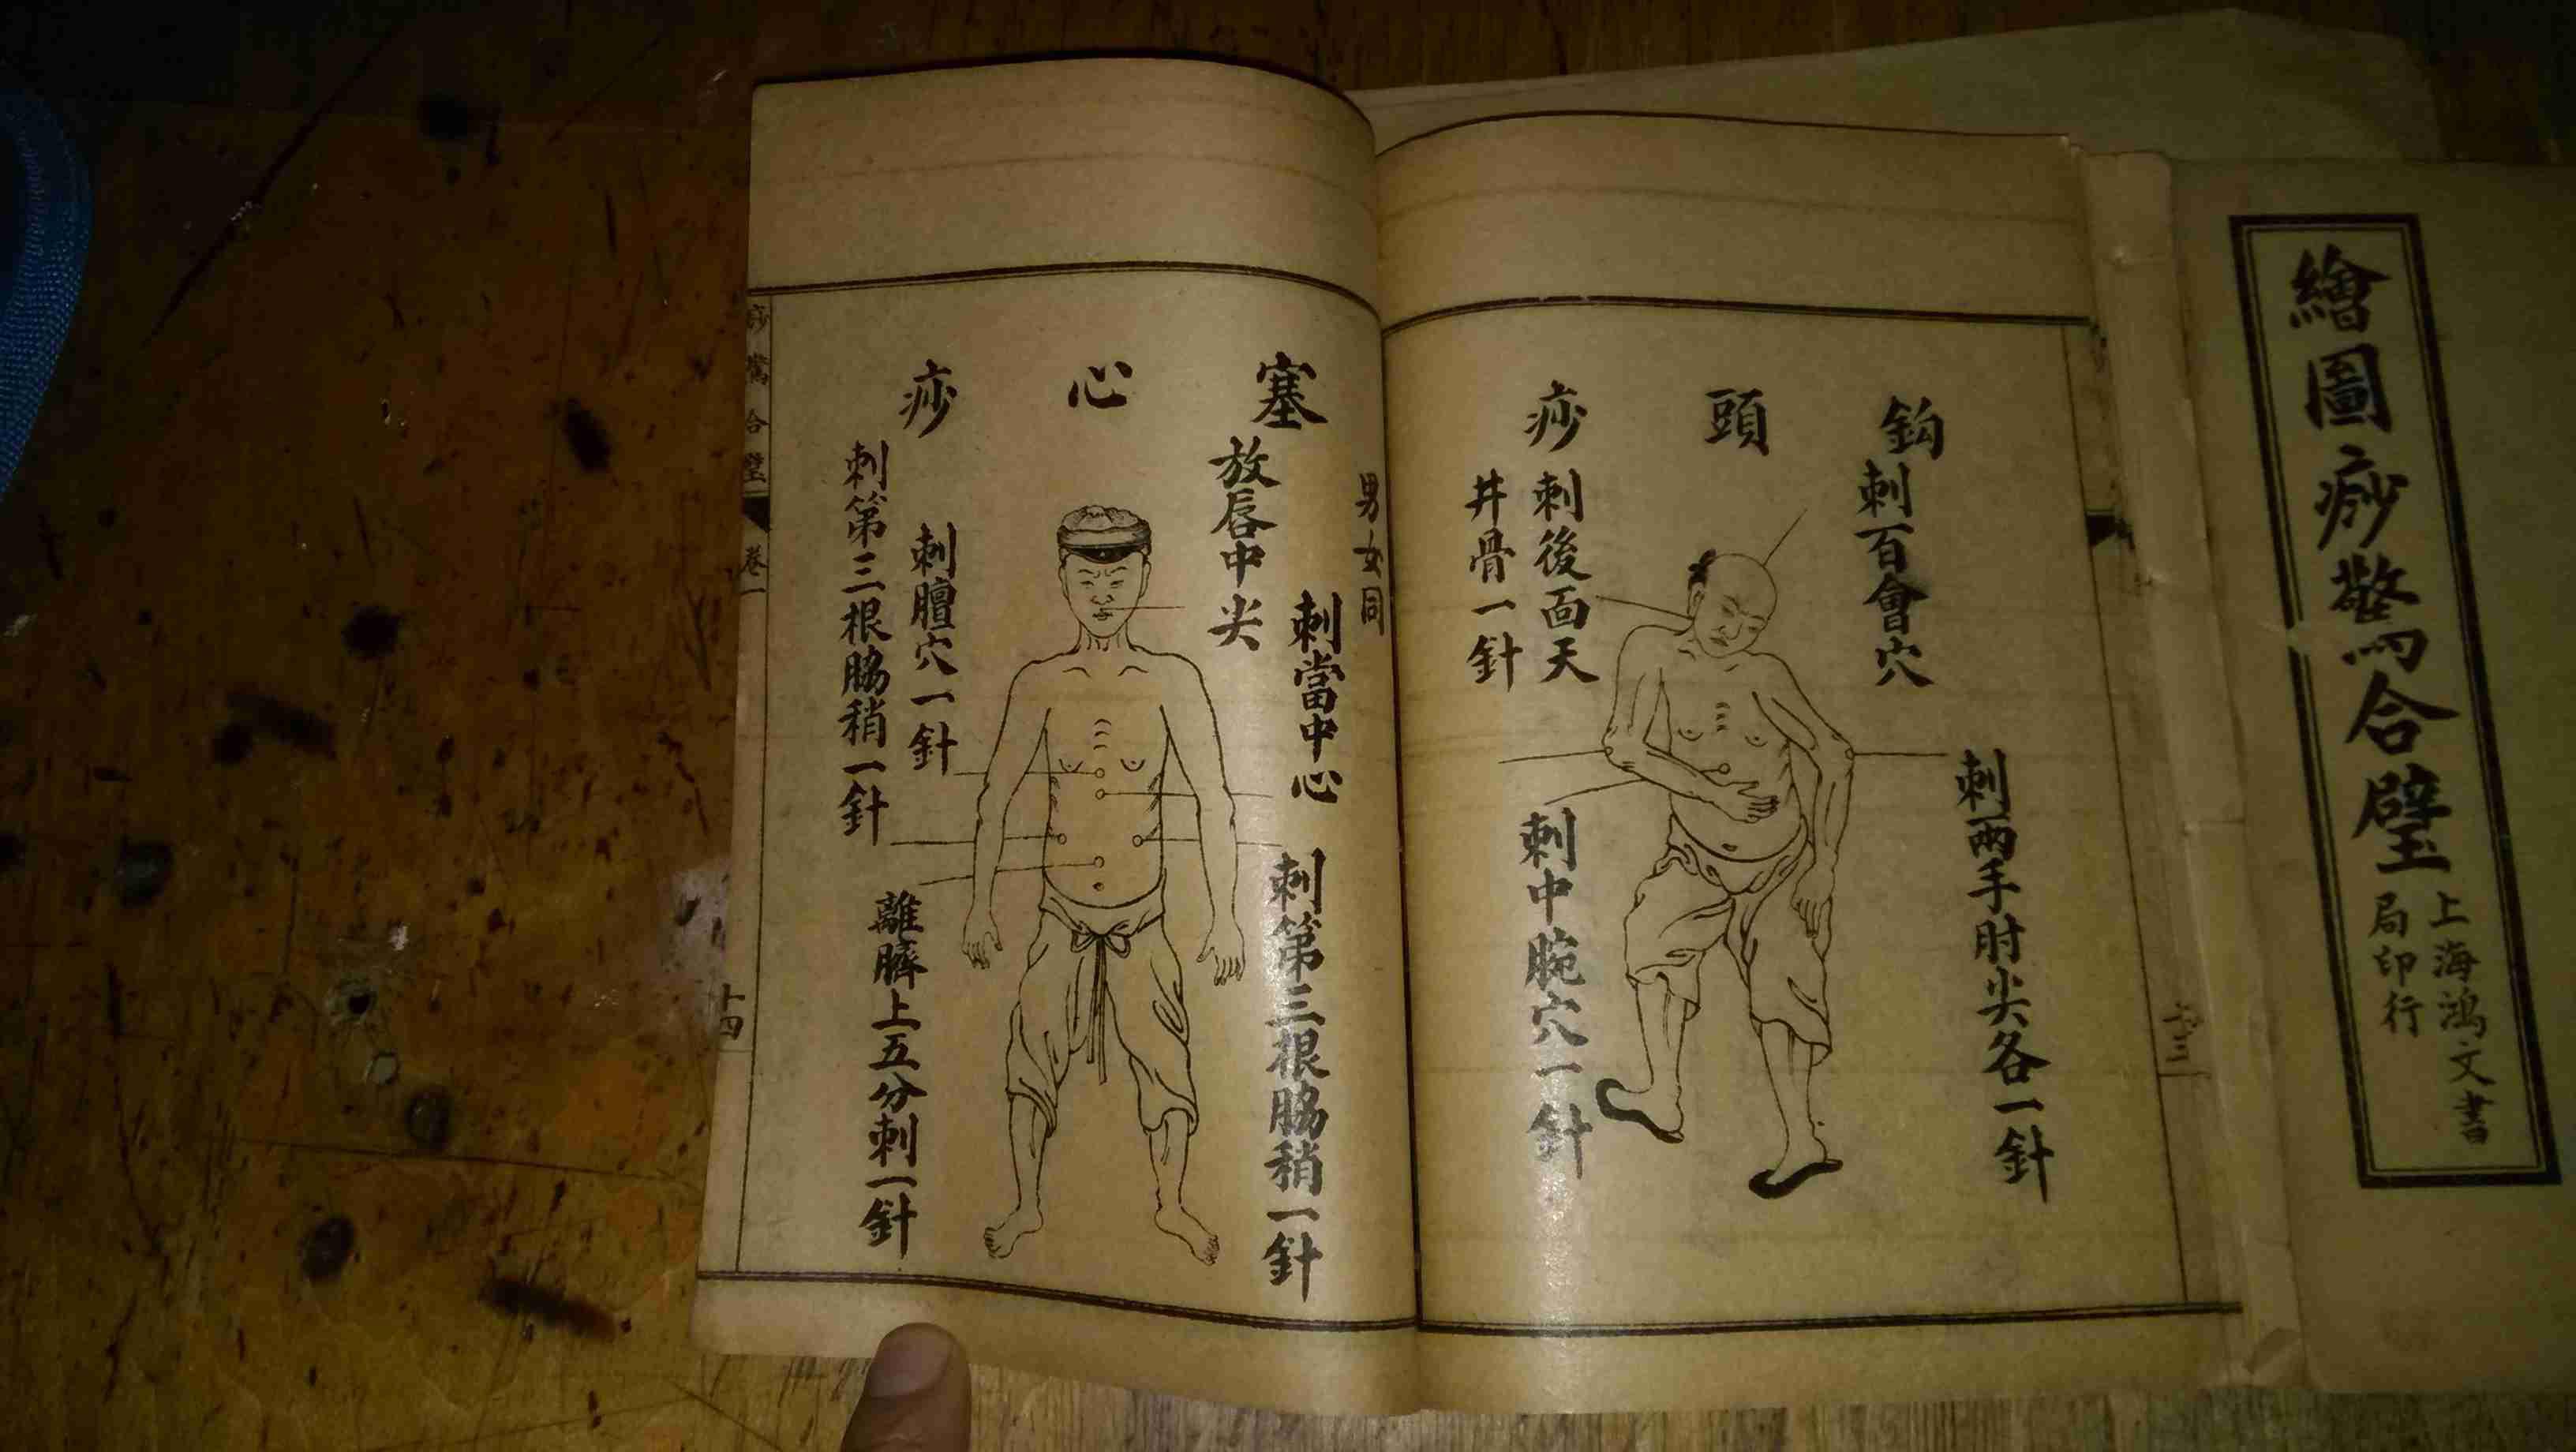 繪圖痧驚合璧
上海鴻文書
局印行
鈎頭痧
刺百會穴
刺兩手肘尖各一針
刺後面天
井骨一針
刺中腕穴一針
男女同
塞心痧
放唇中尖
刺當中心
刺第三根脇稍一針
刺膻穴一針
刺第三根脇稍一針
離臍上五分刺一針
痧驚合璧
卷一
十四